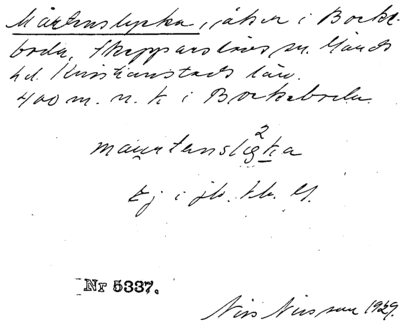 Mårtenslycka, åker i Bocke-
boda, Skepparslövs sn. Gärds
hd. Kristianstads län.
400 m. n. k. i Bockeboda.
Ej i jb. kb. 
Nr 5337.
Nils Nilsson 1929.